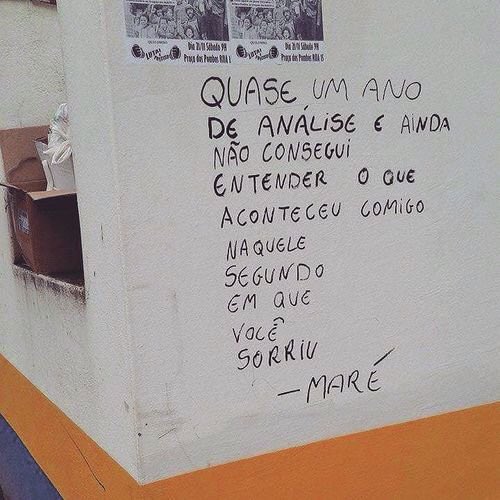 Dia 21/11 Sábado 9H
Praça dos Pombos
Dia 21/11 Sábado 9H
Praça dos Pombos
QUASE UM ANO
DE ANÁLISE E AINDA
NÃO CONSEGUI
ENTENDER O QUE
ACONTECEU COMIGO
NAQUELE
SEGUNDO
EM QUE
VOCÊ
SORRIU
—MARÉ